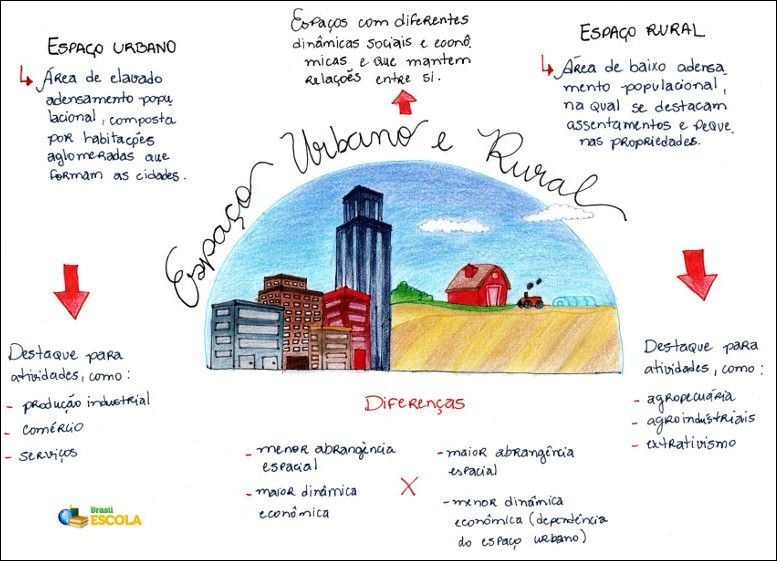 Espaço Urbano e Rural
Espaços com diferentes
dinâmicas sociais e econô
micas e que mantem
relações entre si.
Espaço urbano
Área de elavado
adensamento popu
lacional, composta
por habitações
aglomeradas que
formam as cidades.
Destaque para
atividades, como:
- produção industrial
- comércio
- serviços
Espaço rural
Área de baixo adensa
mento populacional,
na qual se destacam
assentamentos e peque
nas propriedades.
Destaque para
atividades, como:
- agropecuária
- agroindústriais
- extrativismo
Diferenças
- menor abrangência
espacial
- maior dinâmica
econômica
X
- maior abrangência
espacial
- menor dinâmica
econômica (dependência
do espaço urbano)
Brasil
ESCOLA